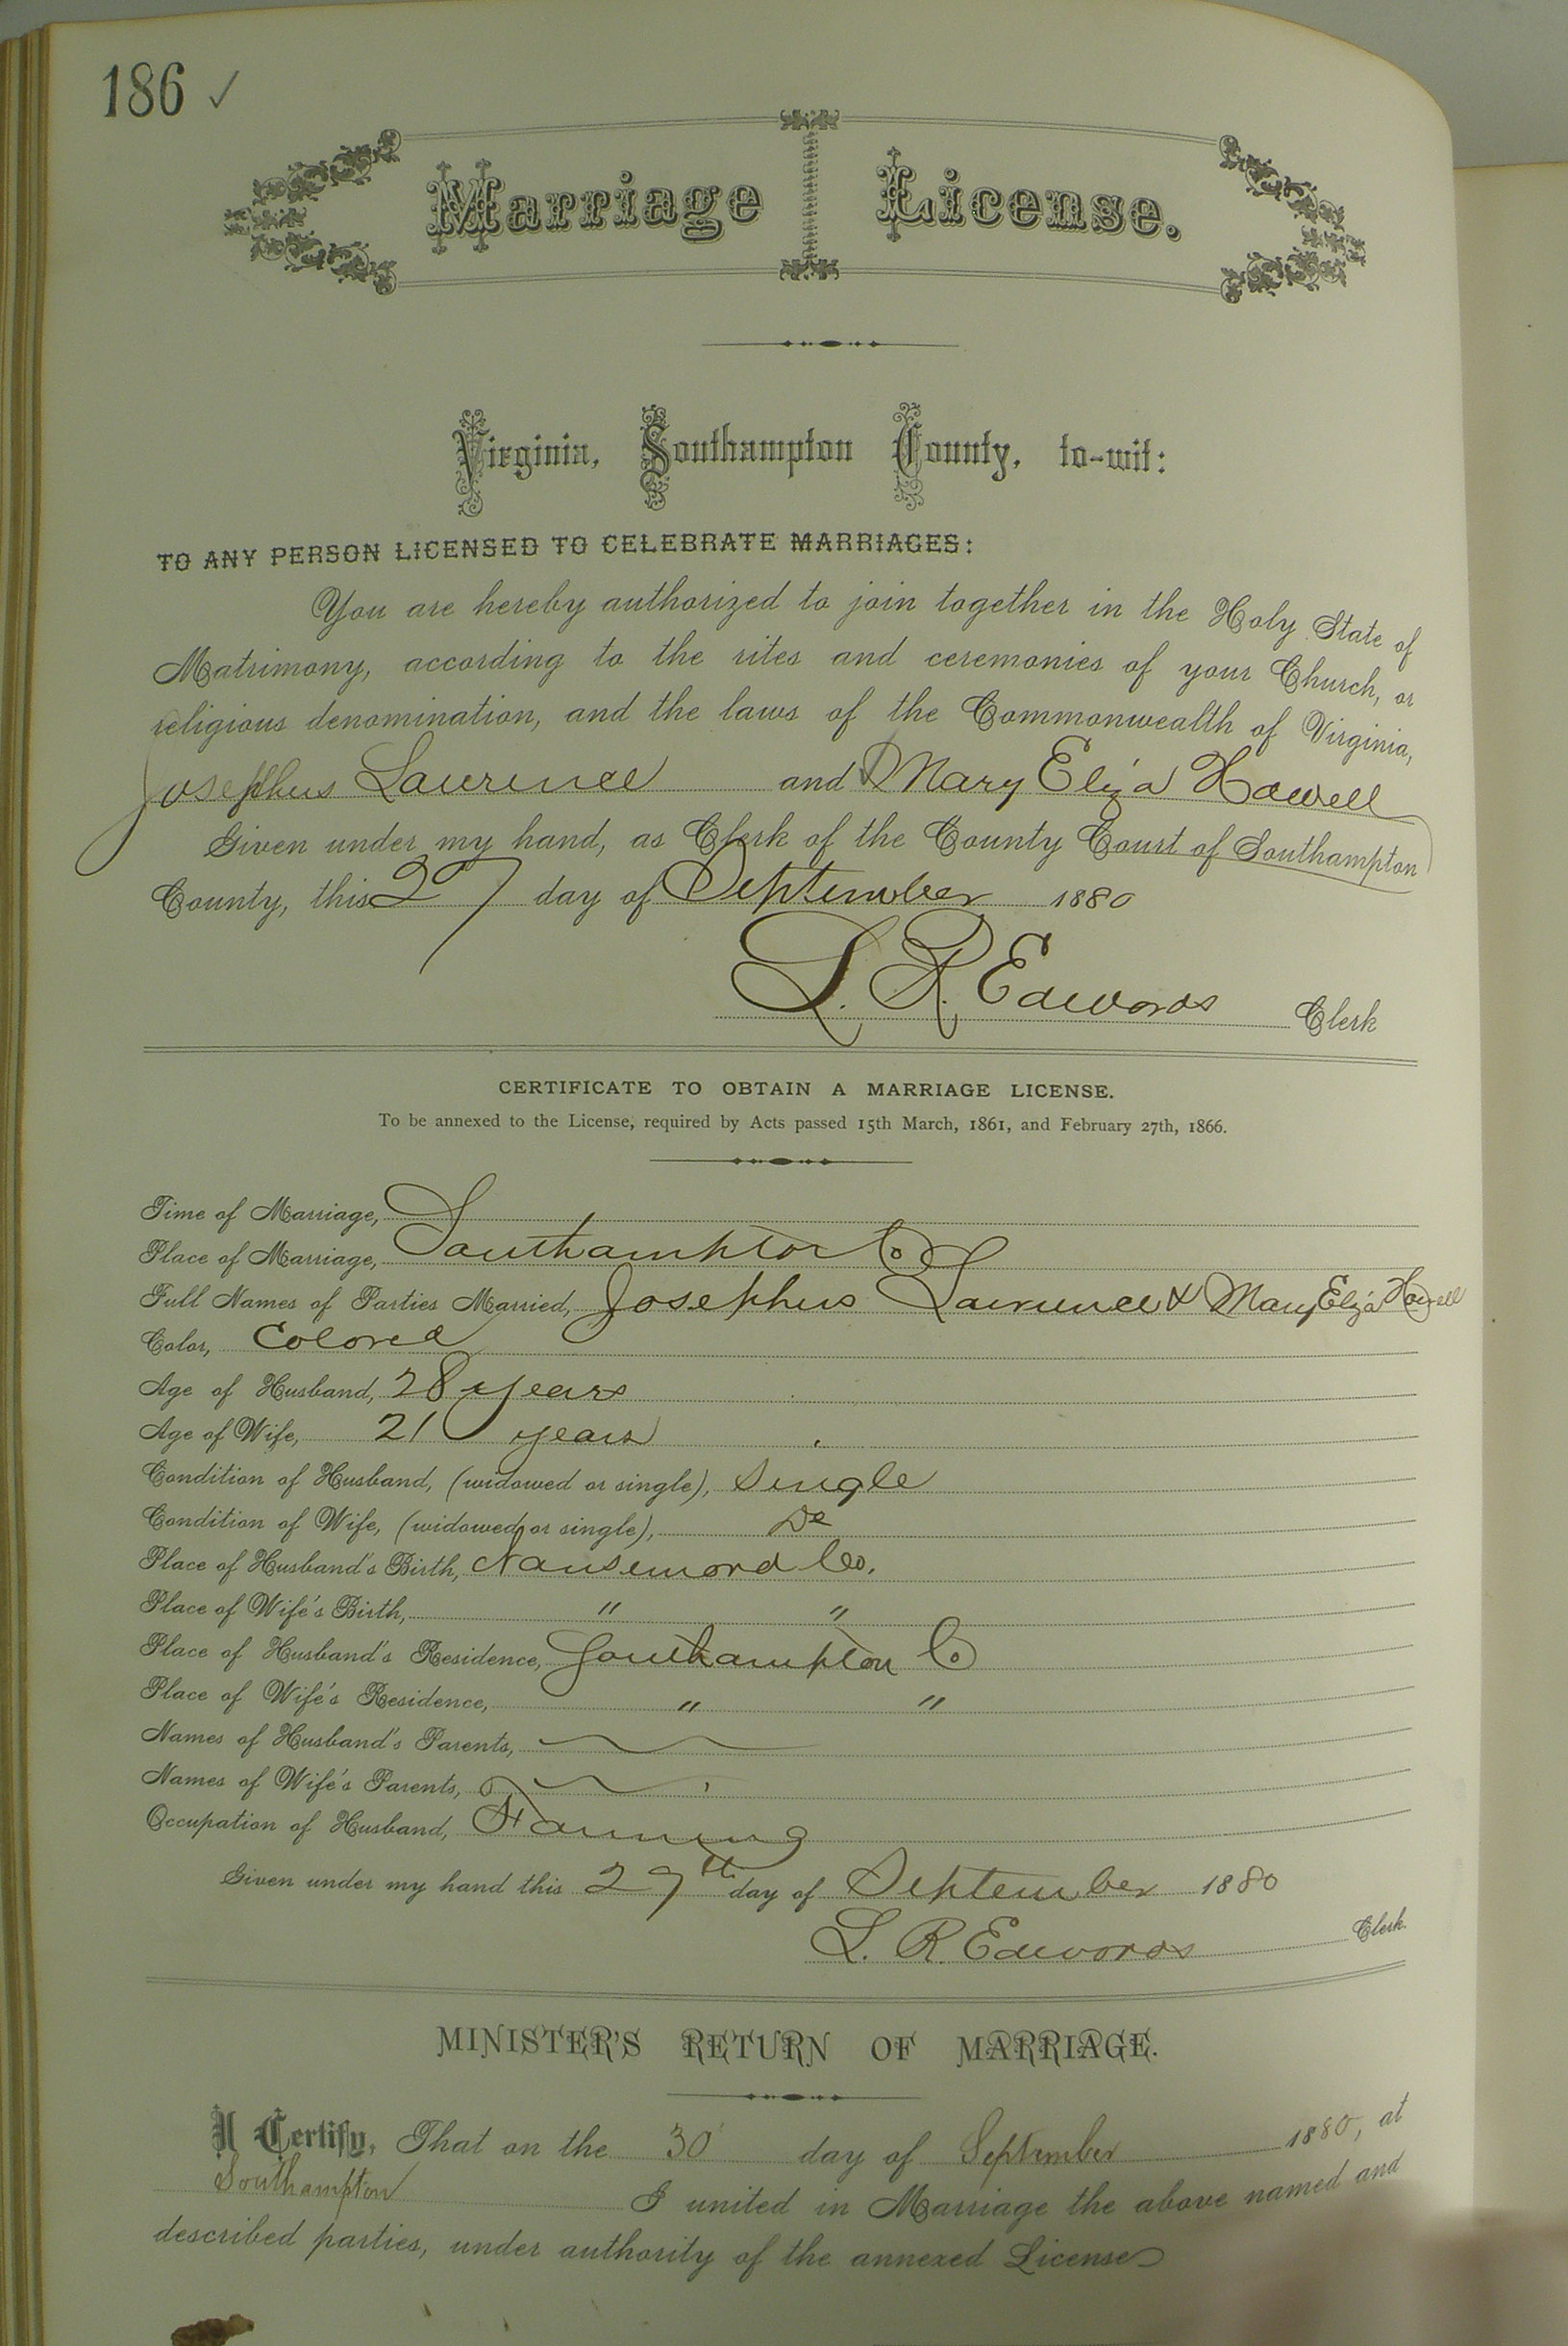 186 ✓
Marriage License.
Virginia, Southampton County, to-wit:
TO ANY PERSON LICENSED TO CELEBRATE MARRIAGES:
You are hereby authorized to join together in the Holy State of
Matrimony, according to the rites and ceremonies of your Church, or
religious denomination, and the laws of the Commonwealth of Virginia,
Josephus Laurence and Mary Eliza Howell
Given under my hand, as Clerk of the County Court of Southampton
County, this 27 day of September 1880
L. R. Edwards Clerk
CERTIFICATE TO OBTAIN A MARRIAGE LICENSE.
To be annexed to the License, required by Acts passed 15th March, 1861, and February 27th, 1866.
Time of Marriage,
Place of Marriage, Southampton Co
Full Names of Parties Married, Josephus Laurence & Mary Eliza Howell
Color, Colored
Age of Husband, 28 years
Age of Wife, 21 years
Condition of Husband, (widowed or single), Single
Condition of Wife, (widowed or single), Do
Place of Husband's Birth, Nansemond Co.
Place of Wife's Birth, " "
Place of Husband's Residence, Southampton Co
Place of Wife's Residence, " "
Names of Husband's Parents,
Names of Wife's Parents,
Occupation of Husband, Farming
Given under my hand this 27th day of September 1880
L. R. Edwards Clerk.
MINISTER'S RETURN OF MARRIAGE.
I Certify, That on the 30 day of September 1880, at
Southampton I united in Marriage the above named and
described parties, under authority of the annexed License